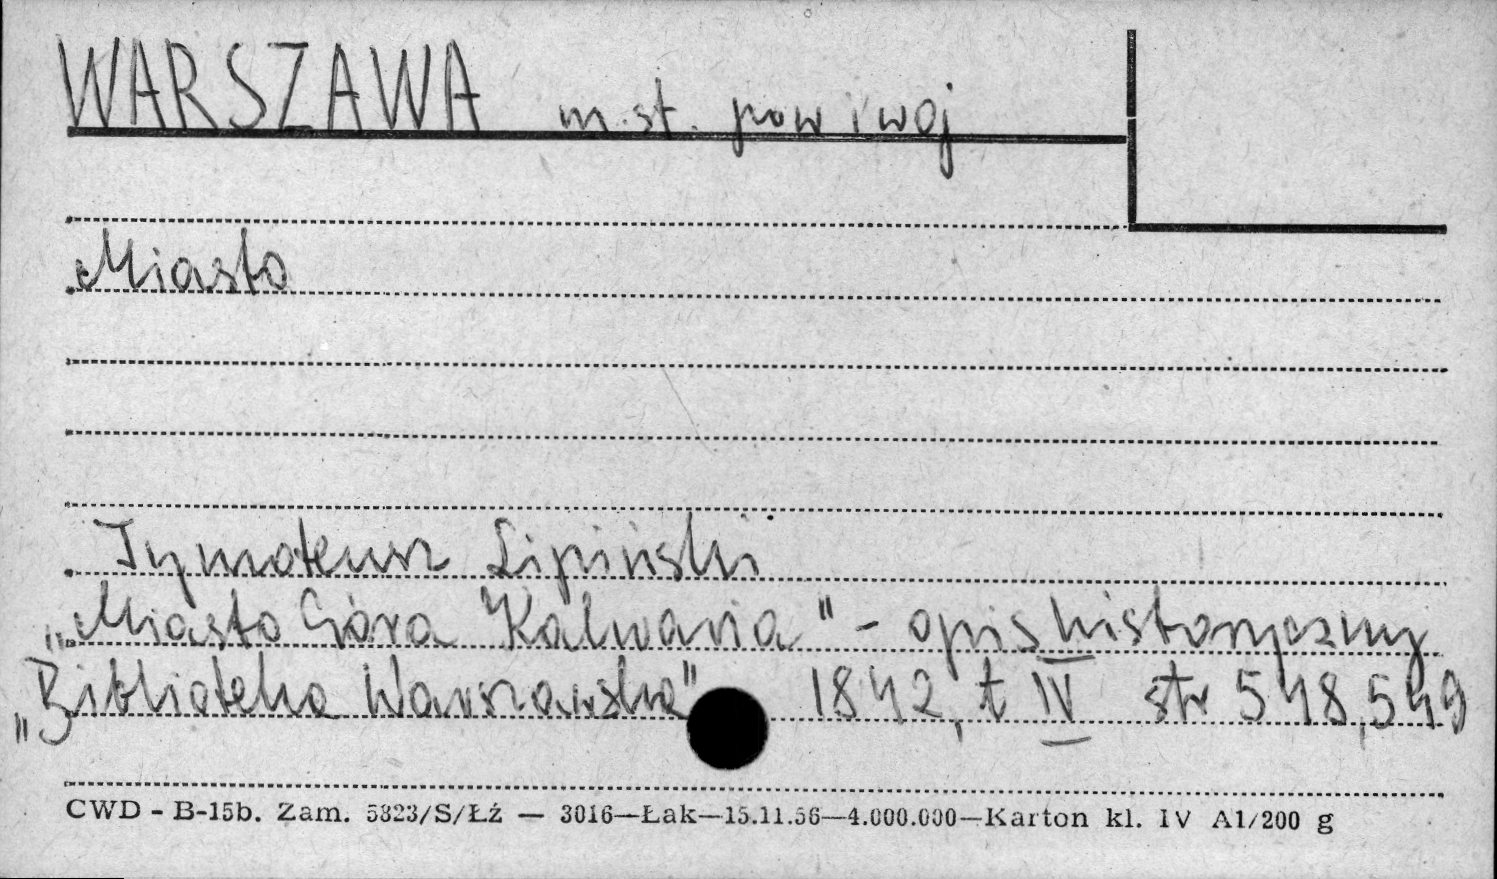 WARSZAWA m. st. pow i woj
Miasto
Tymoteusz Lipiński
„Miasto Góra Kalwaria" - opis historyczny
„Biblioteka Warszawska" 1842, t IV str 548,549
CWD - B-15b. Zam. 5323/S/Łź — 3016—Łak—15.11.56—4.000.000—Karton kl. IV A1/200 g